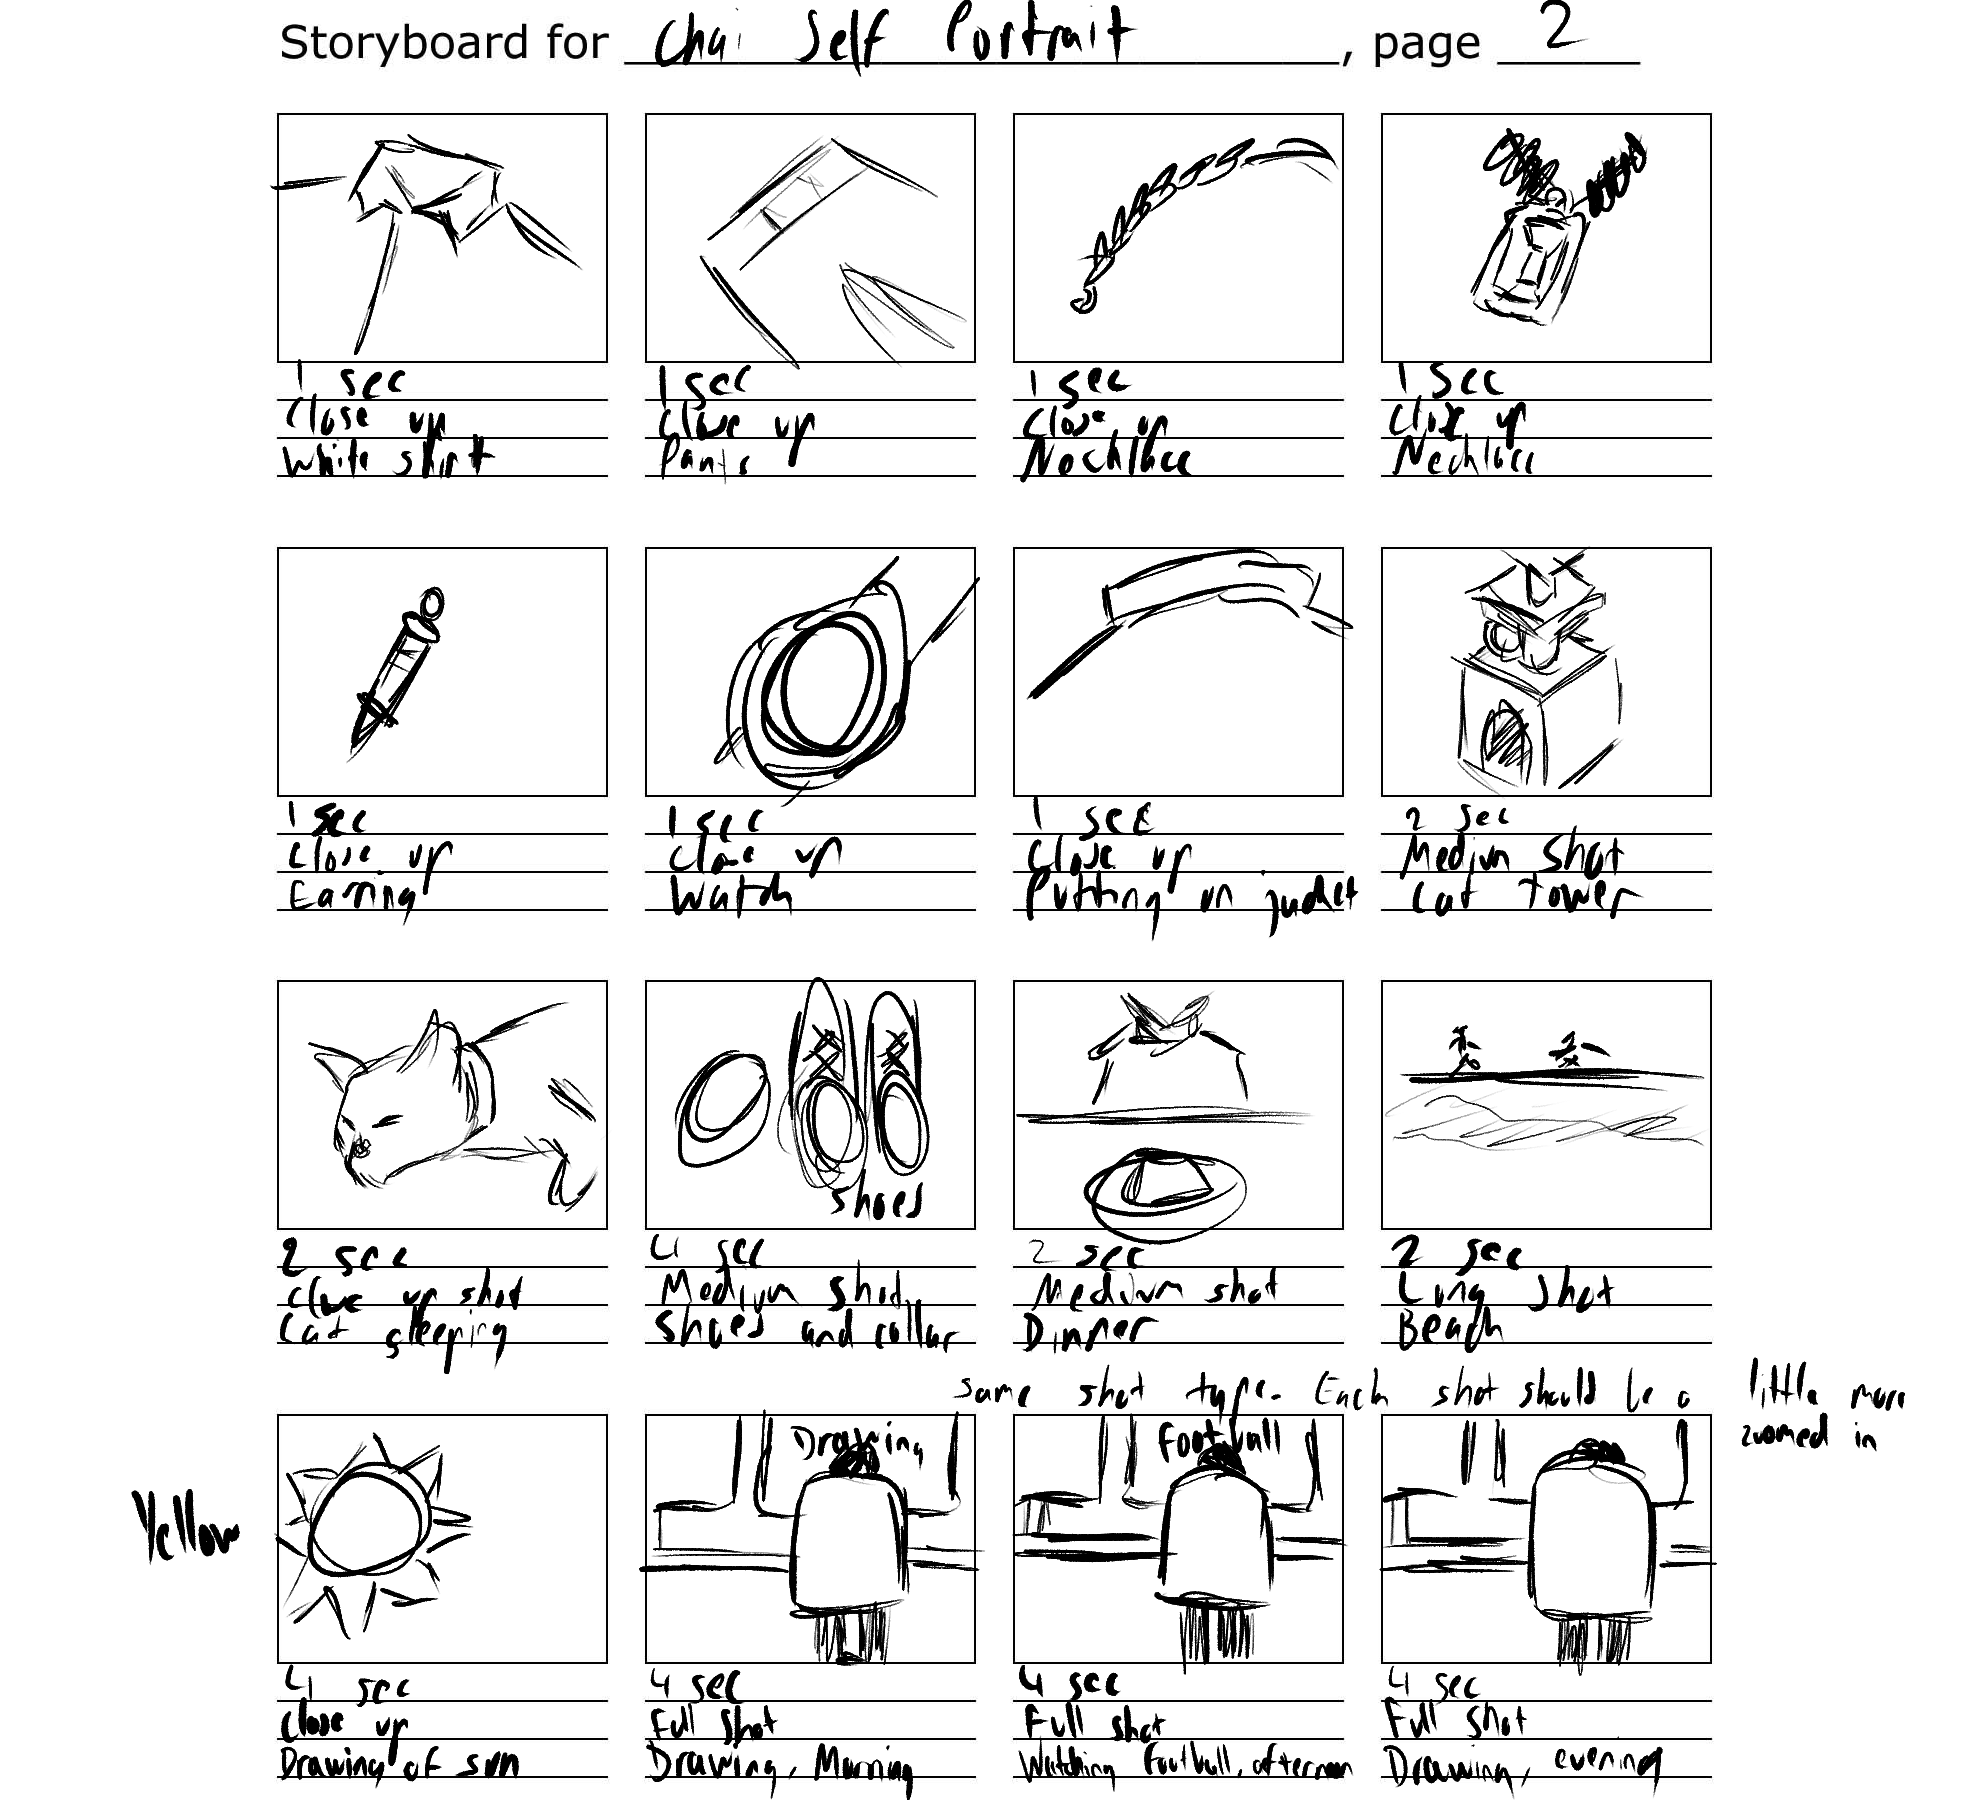 Storyboard for Chai Self Portrait, page 2
1 sec
Close up
White shirt
1 sec
Close up
Pants
1 sec
Close up
Necklace
1 sec
Close up
Necklace
1 sec
Close up
Earring
1 sec
Close up
Watch
1 sec
Close up
Putting on jacket
2 sec
Medium shot
Cat tower
2 sec
Close up shot
Cat sleeping
Shoes
4 sec
Medium shot
Shoes and collar
2 sec
Medium shot
Dinner
2 sec
Long shot
Beach
same shot type. Each shot should be a little more
zoomed in
Yellow
4 sec
Close up
Drawing of sun
Drawing
4 sec
Full shot
Drawing, Morning
Football
4 sec
Full shot
Watching football, afternoon
4 sec
Full shot
Drawing, evening